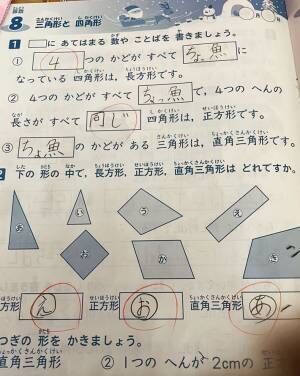 8 三角形と 四角形
1 □に あてはまる 数や ことばを 書きましょう。
① 4 つの かどが すべて ちょ魚 に
なっている 四角形は，長方形です。
② 4つの かどが すべて ちょっ魚 で，4つの へんの
長さが すべて 同じ 四角形は，正方形です。
③ ちょ魚 の かどが ある 三角形は，直角三角形です。
下の 形の 中で，長方形，正方形，直角三角形は どれですか。
あ い う え
お か き
方形 え 正方形 お 直角三角形 あ
つぎの 形を かきましょう。
直角三角形 ② 1つの へんが 2cmの 正